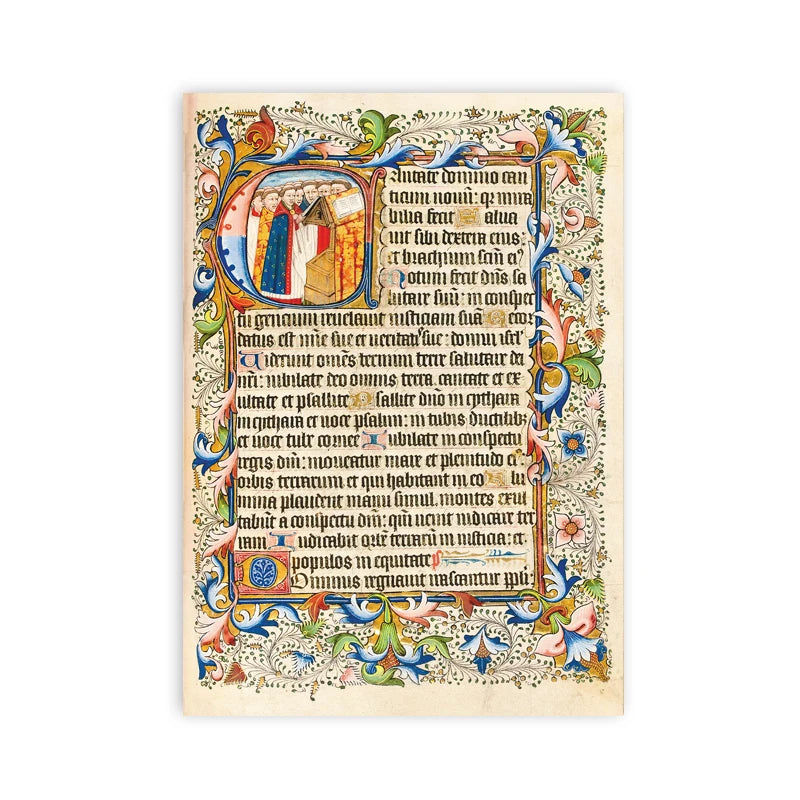 Cantate domino can
ticum nouum: qr mira
bilia fecit Salua
uit sibi dextera eius:
et brachium scm̄ eiꝰ
Notum fecit dn̄s sa
lutare suū: in conspec
tu gencium reuelauit iusticiam suā Recor
datus est mīe sue et ueritatis sue: domui isrl
Uiderunt om̄es termini terre salutare dei
nr̄i: iubilate deo omnis terra. cantate et ex
ultate et psallite Psallite dn̄o in cythara
in cythara et uoce psalmi: in tubis ductilib
et uoce tube cornee Iubilate in conspectu
regis dn̄i: moueatur mare et plenitudo eiꝰ
orbis terrarum et qui habitant in eo Flu
mina plaudent manu simul. montes exul
tabūt a conspectu dn̄i: qm̄ uenit iudicare ter
ram Iudicabit orbē terrarū in iusticia: et
populos in equitate
Dominus regnauit irascantur ppli: